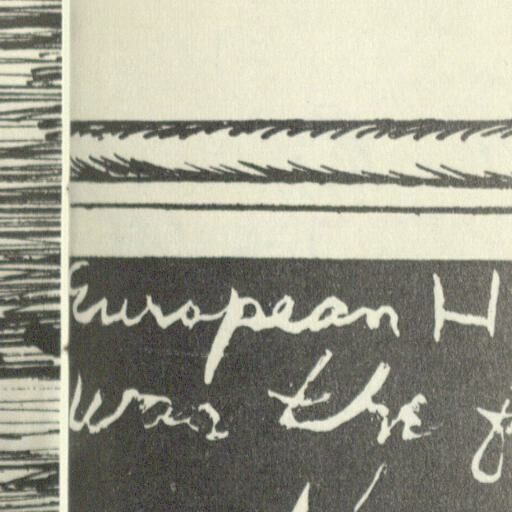 European H
was the f